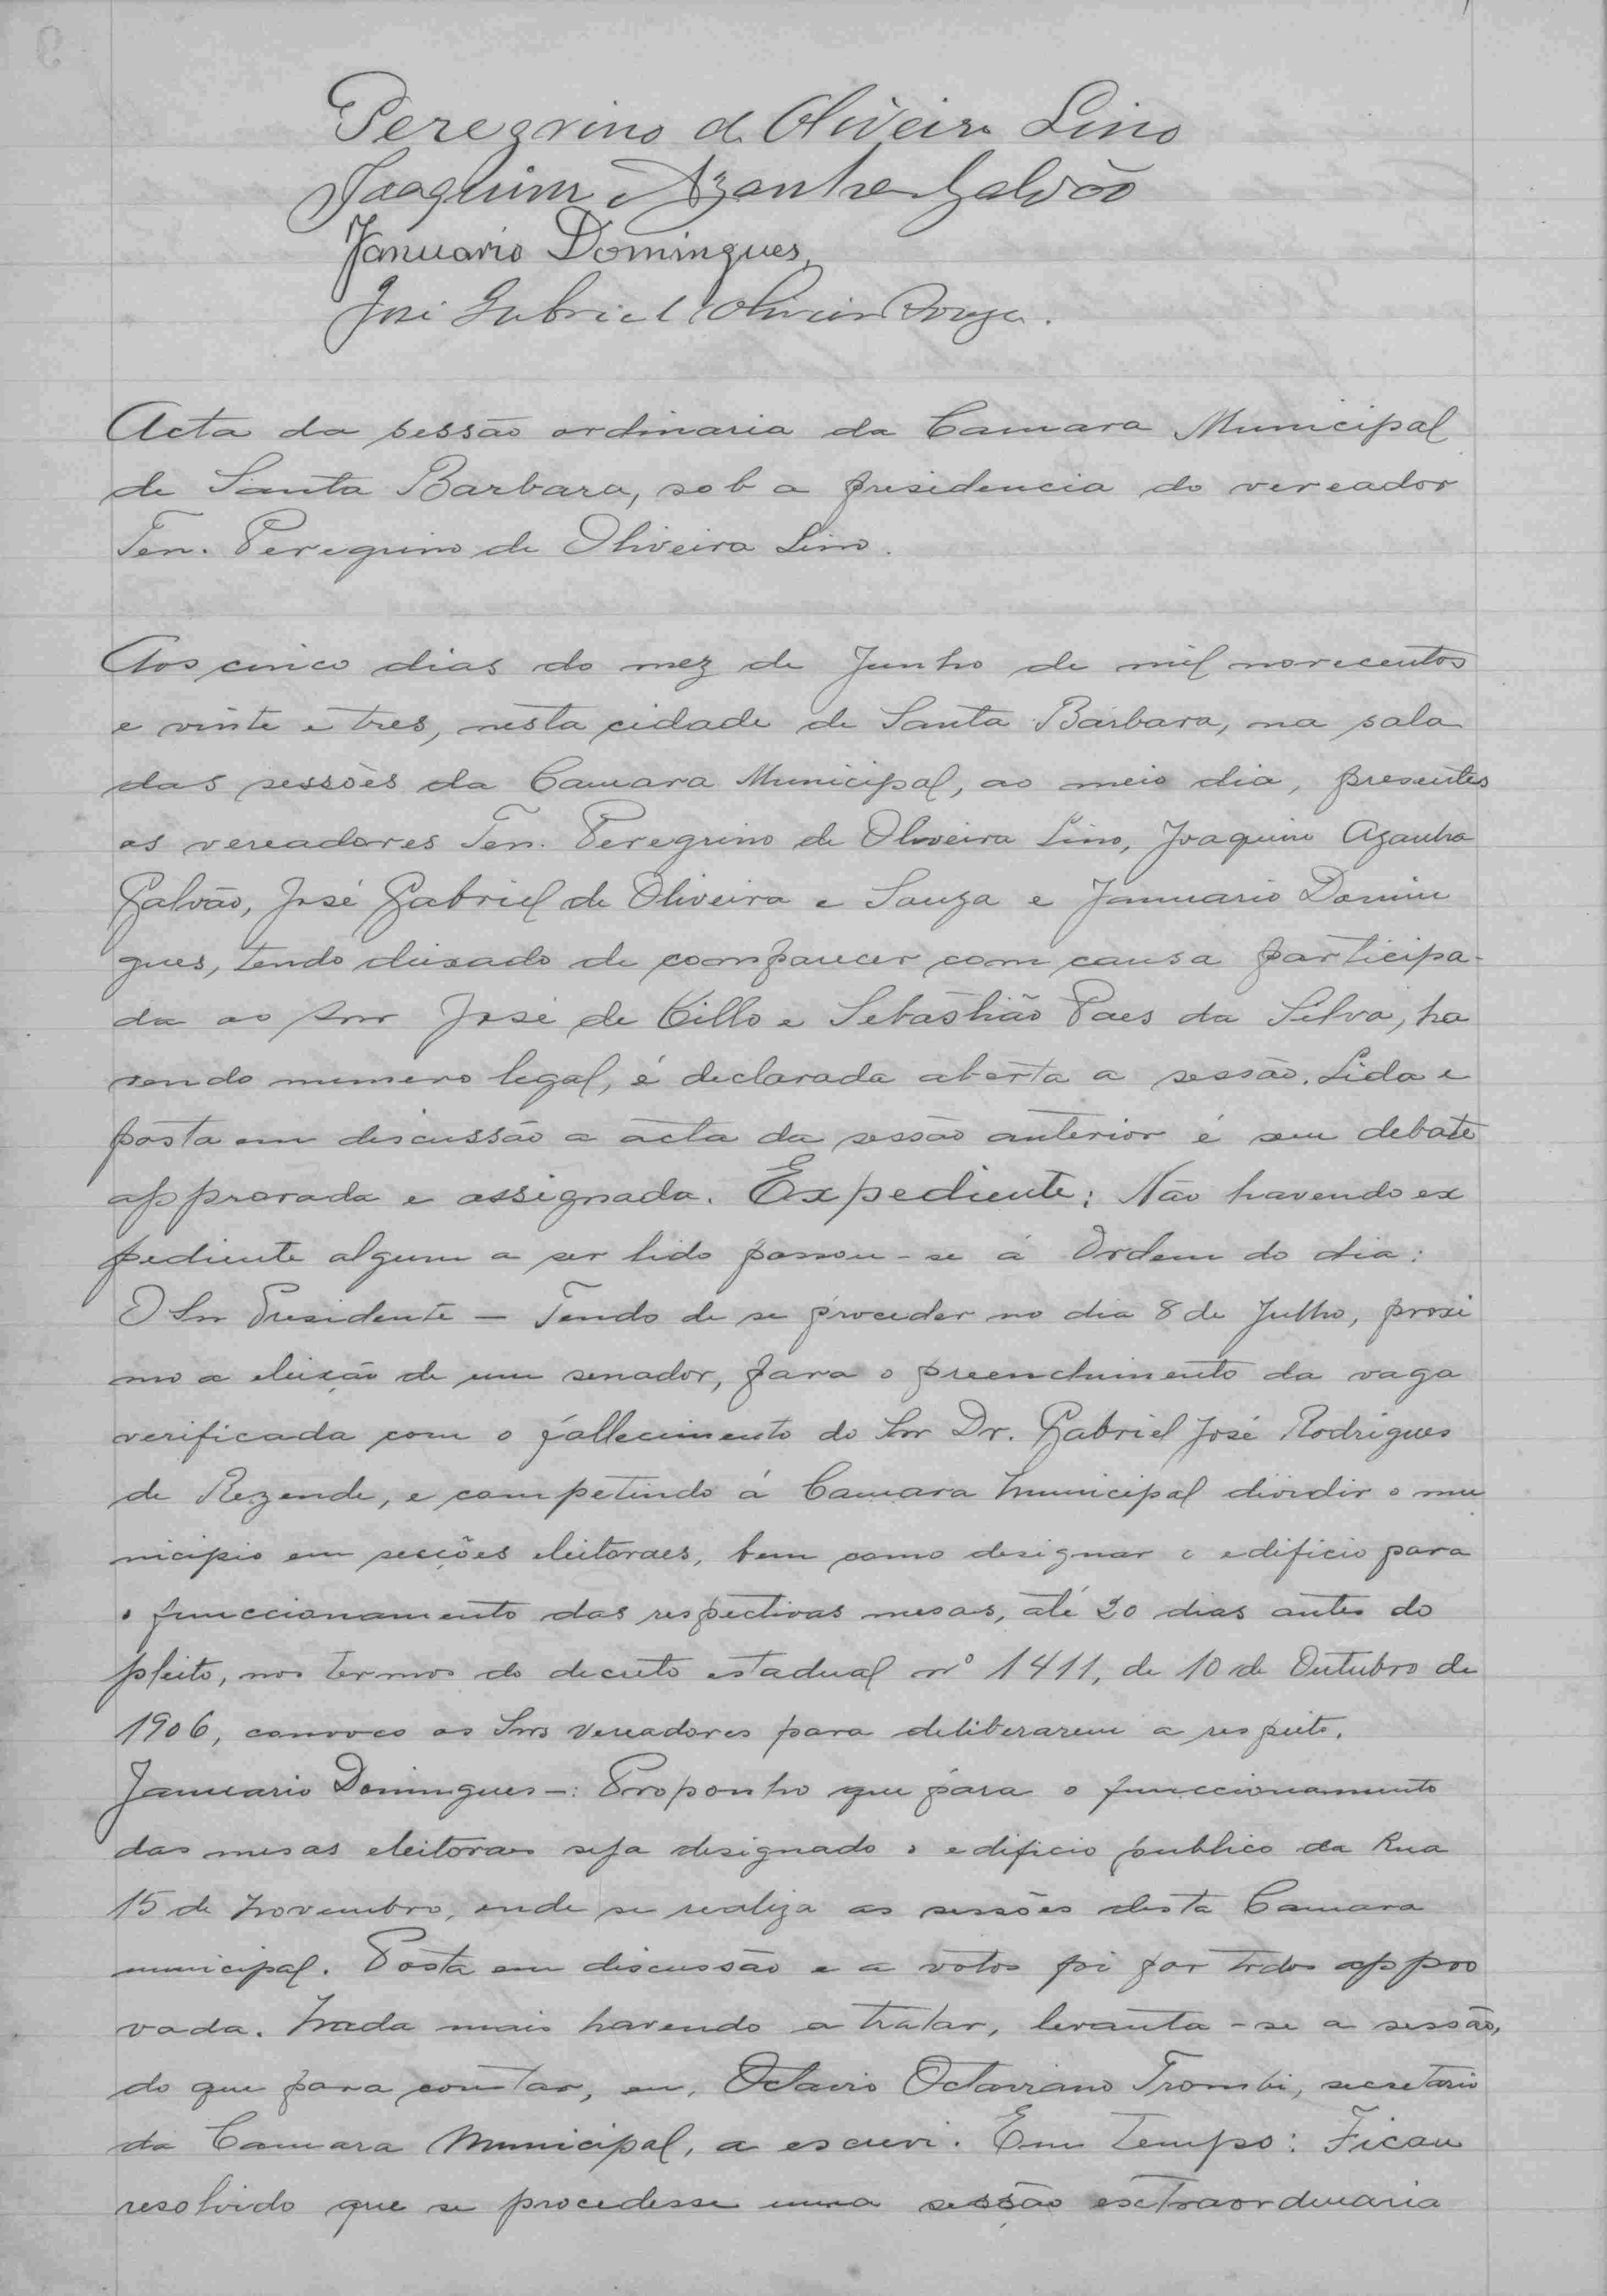 Peregrino de Oliveira Lino
Joaquim Azanha Galvão
Januario Domingues
José Gabriel Oliveira Souza.
Acta da sessão ordinaria da Camara Municipal
de Santa Barbara, sob a presidencia do vereador
Ten. Peregrino de Oliveira Lino.
Aos cinco dias do mez de Junho de mil novecentos
e vinte e tres, nesta cidade de Santa Barbara, na sala
das sessões da Camara Municipal, ao meio dia, presentes
os vereadores Ten. Peregrino de Oliveira Lino, Joaquim Azanha
Galvão, José Gabriel de Oliveira e Souza e Januario Domin
gues, tendo deixado de comparecer com causa participa-
da ao snr José de Cillo e Sebastião Paes da Silva, ha
vendo numero legal, é declarada aberta a sessão. Lida e
posta em discussão a acta da sessão anterior é sem debate
approvada e assignada. Expediente: Não havendo ex
pediente algum a ser lido passou-se á Ordem do dia:
O Snr Presidente — Tendo de se proceder no dia 8 de Julho, proxi
mo a eleição de um senador, para o preenchimento da vaga
verificada com o fallecimento do Snr Dr. Gabriel José Rodrigues
de Rezende, e competindo á Camara Municipal dividir o mu
nicipio em secções eleitoraes, bem como designar o edificio para
o funccionamento das respectivas mesas, até 20 dias antes do
pleito, nos termos do decreto estadual nº 1411, de 10 de Outubro de
1906, convoco os Snrs Vereadores para deliberarem a respeito.
Januario Domingues-: Proponho que para o funccionamento
das mesas eleitoraes seja designado o edificio publico da Rua
15 de Novembro, onde se realiza as sessões desta Camara
municipal. Posta em discussão e a votos foi por todos appro
vada. Nada mais havendo a tratar, levanta-se a sessão,
do que para constar, eu, Octavio Octaviano Trombi, secretario
da Camara Municipal, a escrevi. Em tempo: Ficou
resolvido que se procedesse uma sessão extraordinaria